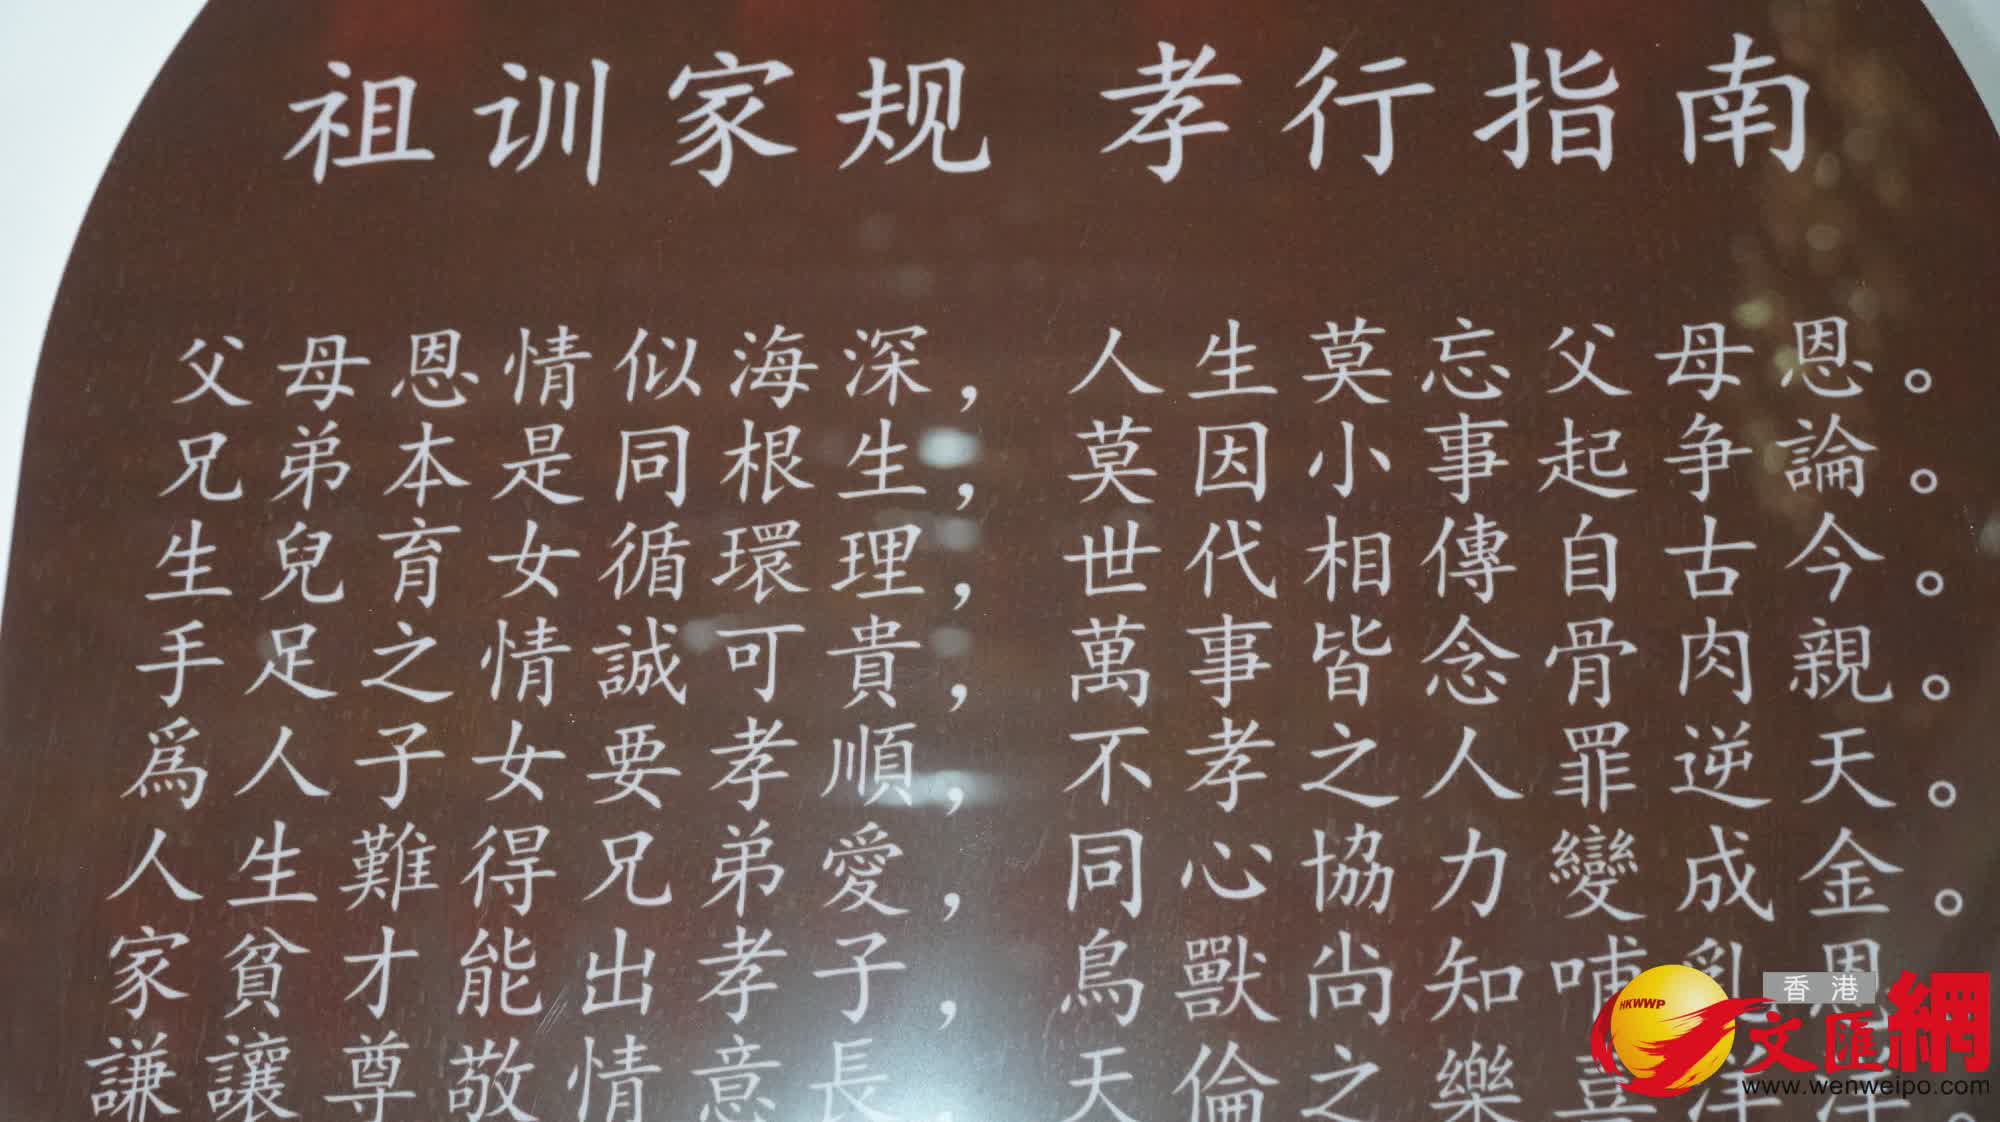 祖训家规 孝行指南
父母恩情似海深，人生莫忘父母恩。
兄弟本是同根生，莫因小事起争論。
生兒育女循環理，世代相傳自古今。
手足之情誠可貴，萬事皆念骨肉親。
爲人子女要孝順，不孝之人罪逆天。
人生難得兄弟愛，同心協力變成金。
家貧才能出孝子，鳥獸尚知哺乳恩
謙讓尊敬情意長，天倫之樂喜洋洋。
HKWWP
香港
文匯網
www.wenweipo.com